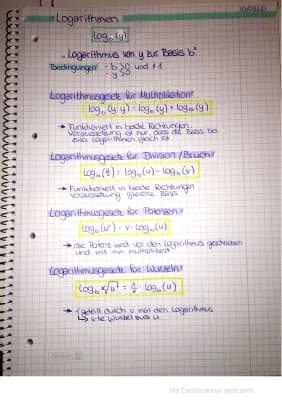 10/03/21
Logarithmen
log_b (y)
"Logarithmus von y zur Basis b"
Bedingungen: b > 0 und ≠ 1
y > 0
Logarithmusgesetz für Multiplikation:
log_b (y·y) = log_b (y) + log_b (y)
→ Funktioniert in beide Richtungen.
Voraussetzung ist nur, dass die Basis bei
Logarithmen gleich ist
Logarithmusgesetz für Division / Brüche:
= log_b (u) - log_b (v)
→ Funktioniert in beide Richtungen
Voraussetzung gleiche Basis
Logarithmusgesetz für Potenzen:
log_b (u^v) = v · log_b (u)
→ die Potenz wird vor den Logarithmus geschrieben
und mit ihm multipliziert
Logarithmusgesetz für Wurzeln:
log_b ᵛ√u = 1/v · log_b (u)
→ 1 geteilt durch v mal den Logarithmus
v-te Wurzel aus u
Mit CamScanner gescannt